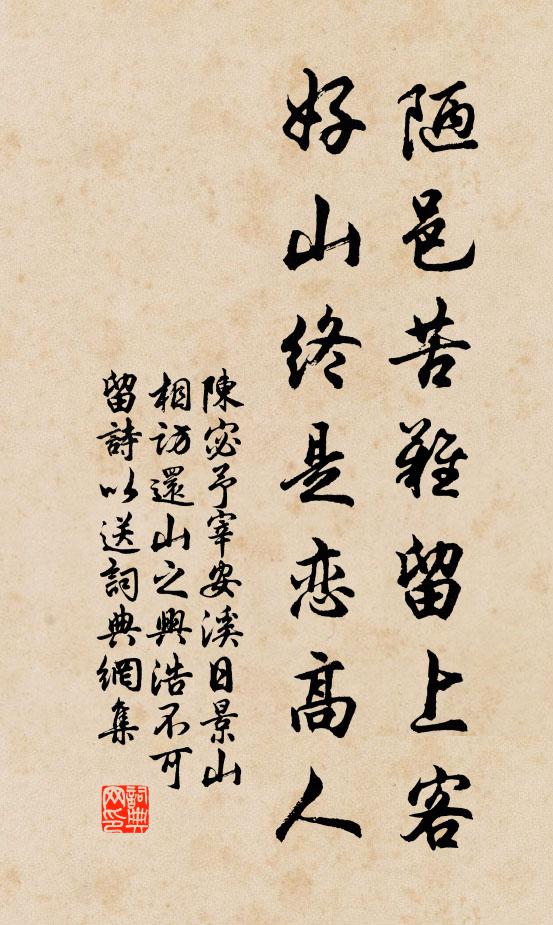 陋邑苦難留上客
好山終是恋高人
陳宓予宰安溪日景山
相訪還山之興浩不可
留詩以送詞典網集
詞典
网印